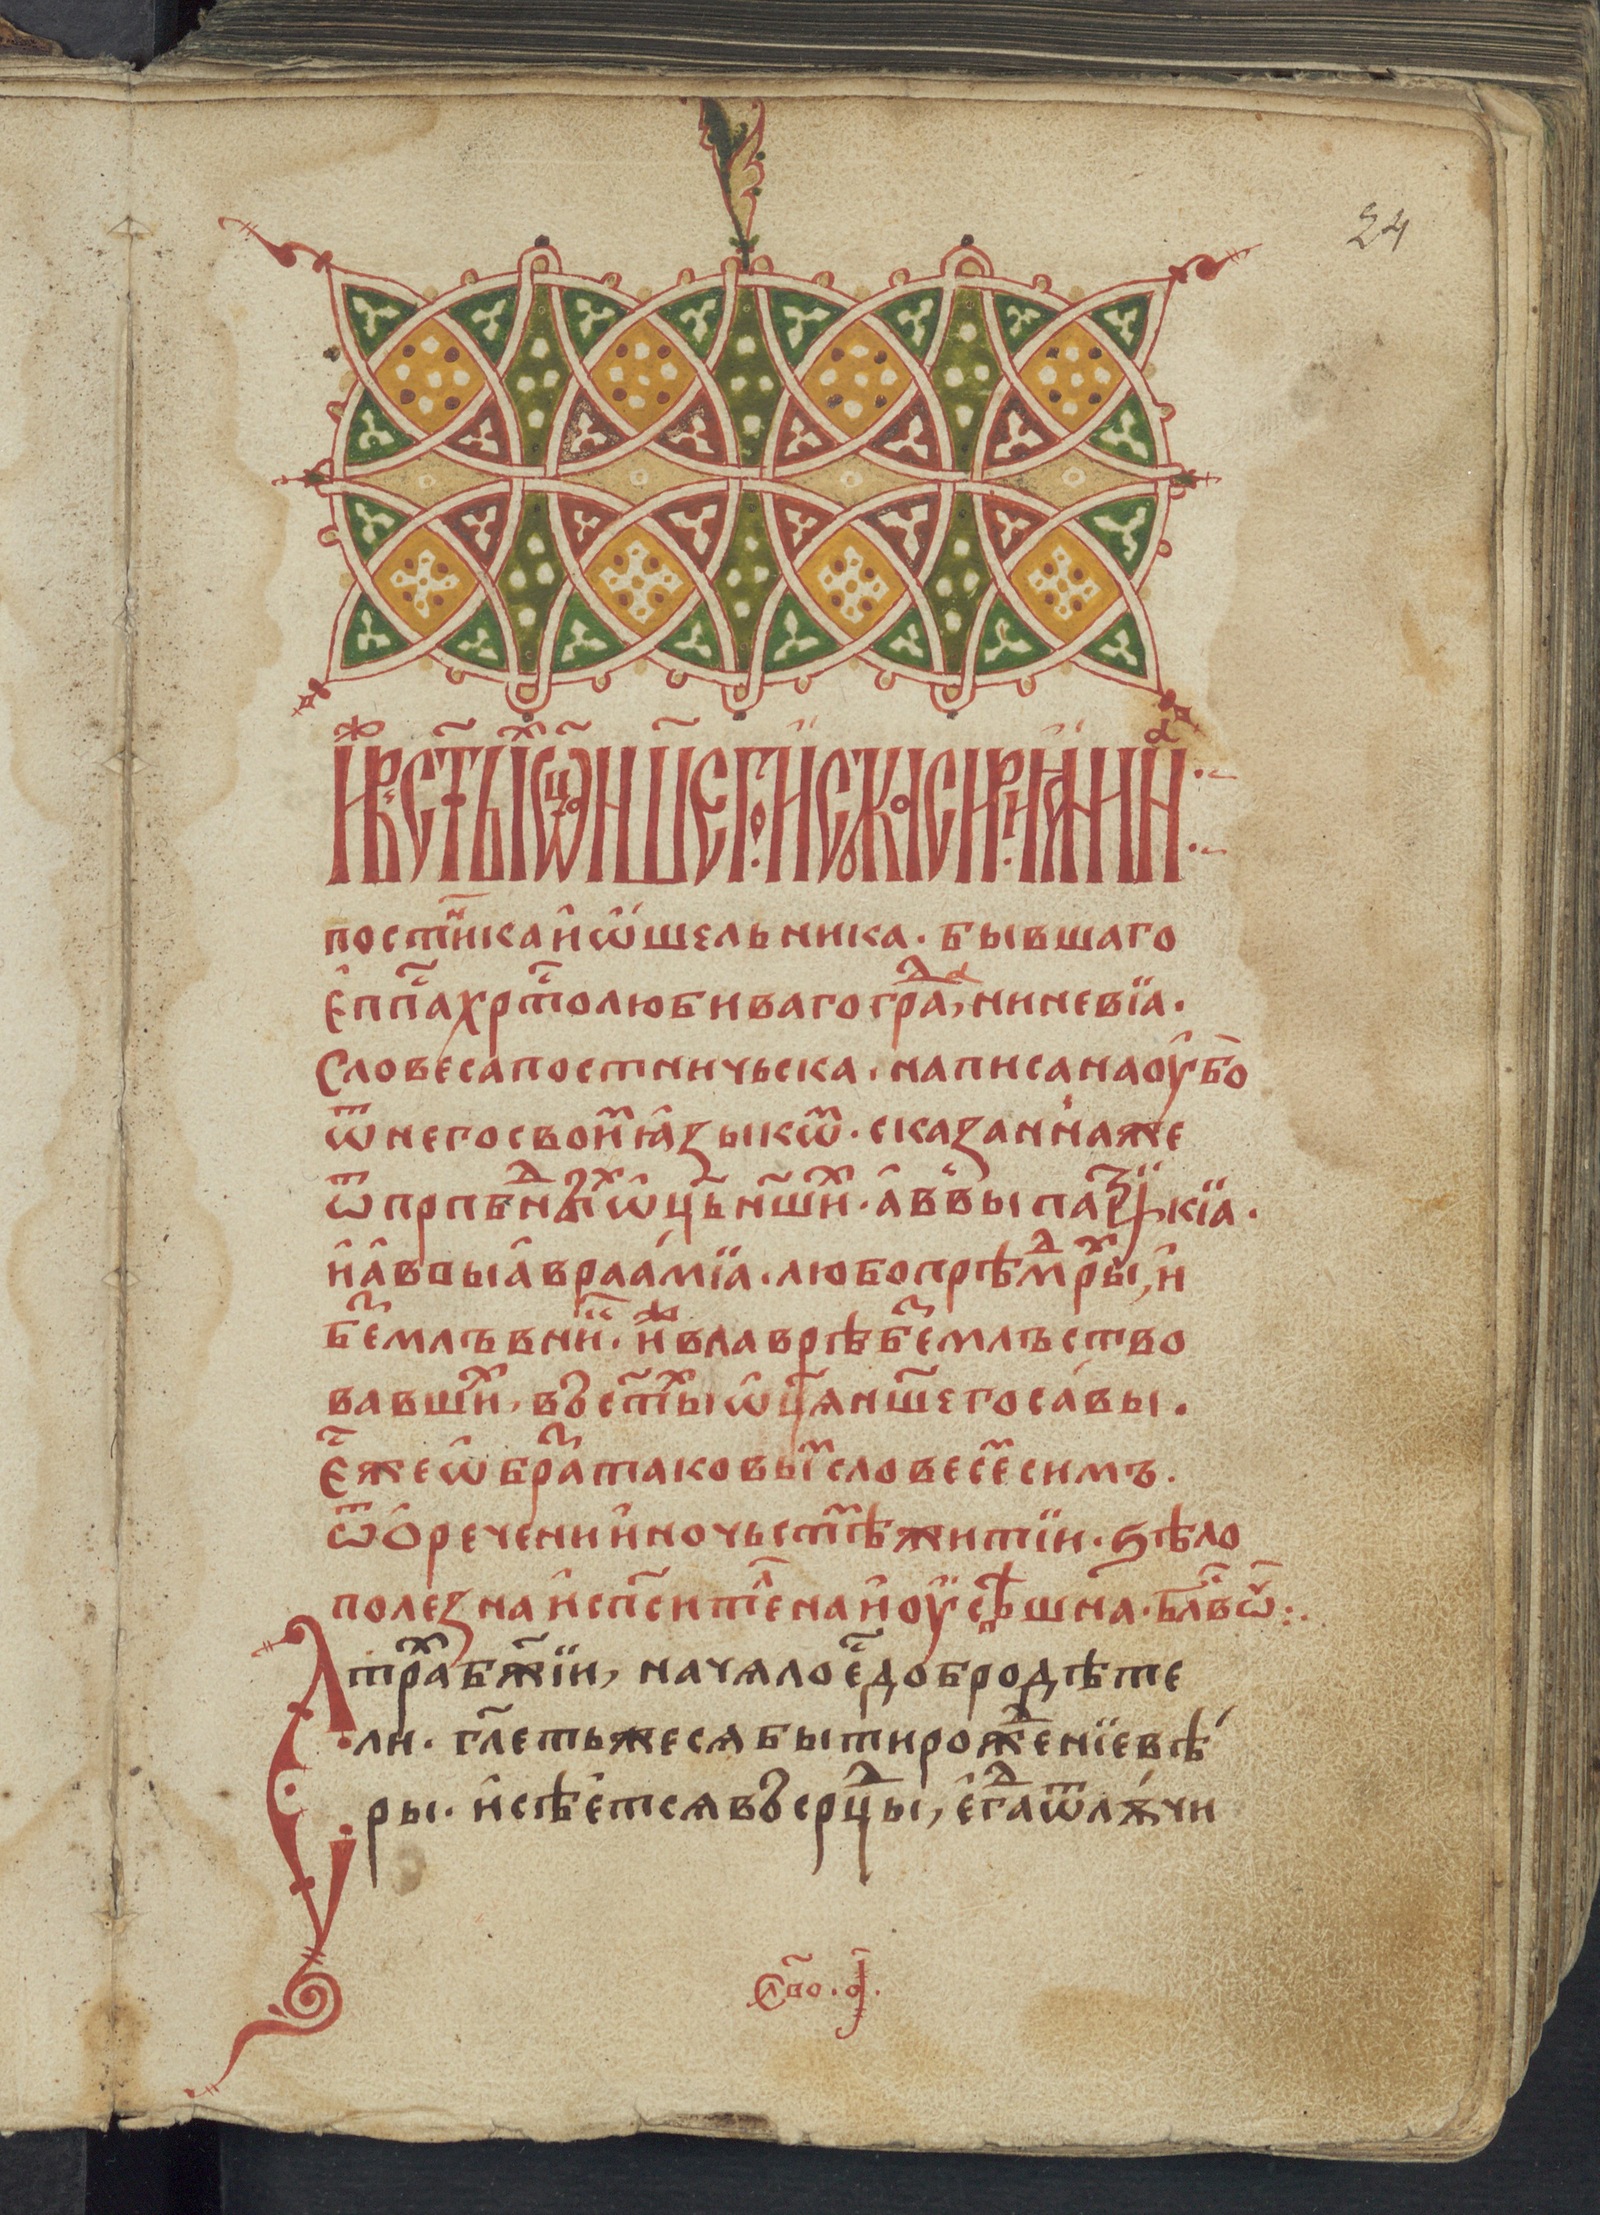 24
И҆́же въ ст҃ы́хъ ѿц҃а на́шего і҆саака сирїанина
постн҃ика и҆ ѿше́льника · бывшаго
є҆пⷭ҇па хрⷭ҇толюбиваго граⷣ, ниневїа ·
Словеса постничьска · написана оу҆бо
ѿ него своиⷨ ꙗ҆зыкѡⷨ · сказанная же
ѿ прпⷣбныⷯ ѡ҆ц҃ъ нш҃иⷯ · а҆ввы патрїкїа ·
и҆ а҆ввы а҆враа́мїа · любопрѣмⷣрыⷯ, и҆
беⷥмлъвниⷦ · иⷤ в лаврѣ беⷥмлъство
вавшиⷯ, въ ст҃ыⷯ ѡ҆ц҃а нш҃его са́вы ·
Є҆́же ѡ҆браⷥ таковыⷨ словесеⷨ симъ ·
ѿ Ѻ҆речени и҆ иночьстѣⷨ житїи · ѕѣло
полезна и҆ сп҃сителна и҆ оу҆сръⷣшна · бл҃вѡ ⁘
Страⷯ бж҃їи, начало єⷭ҇ добродѣте
ли · гл҃еть же ся быти рожⷣенїе вѣ
ры · и҆ сѣ́ется въ срⷣцы, є҆гⷣа ѿлꙋчи
Сло́во · а҃ ·